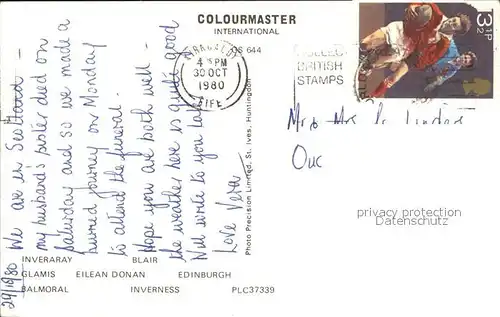 COLOURMASTER
INTERNATIONAL
GS 644
4 15PM
30 OCT
1980
FIFE
COLLECT
BRITISH
STAMPS
3½P
We are in Scotland -
my husband's sister died on
Saturday and so we made a
hurried journey on Monday
to attend the funeral.
Hope you are both well -
the weather here is quite good
Will write to you later
Love Vera
29/10/80
Mr & Mrs
Photo Precision Limited, St. Ives, Huntingdon
privacy protection
www.oldthing.com
INVERARAY BLAIR
GLAMIS EILEAN DONAN EDINBURGH
BALMORAL INVERNESS PLC37339